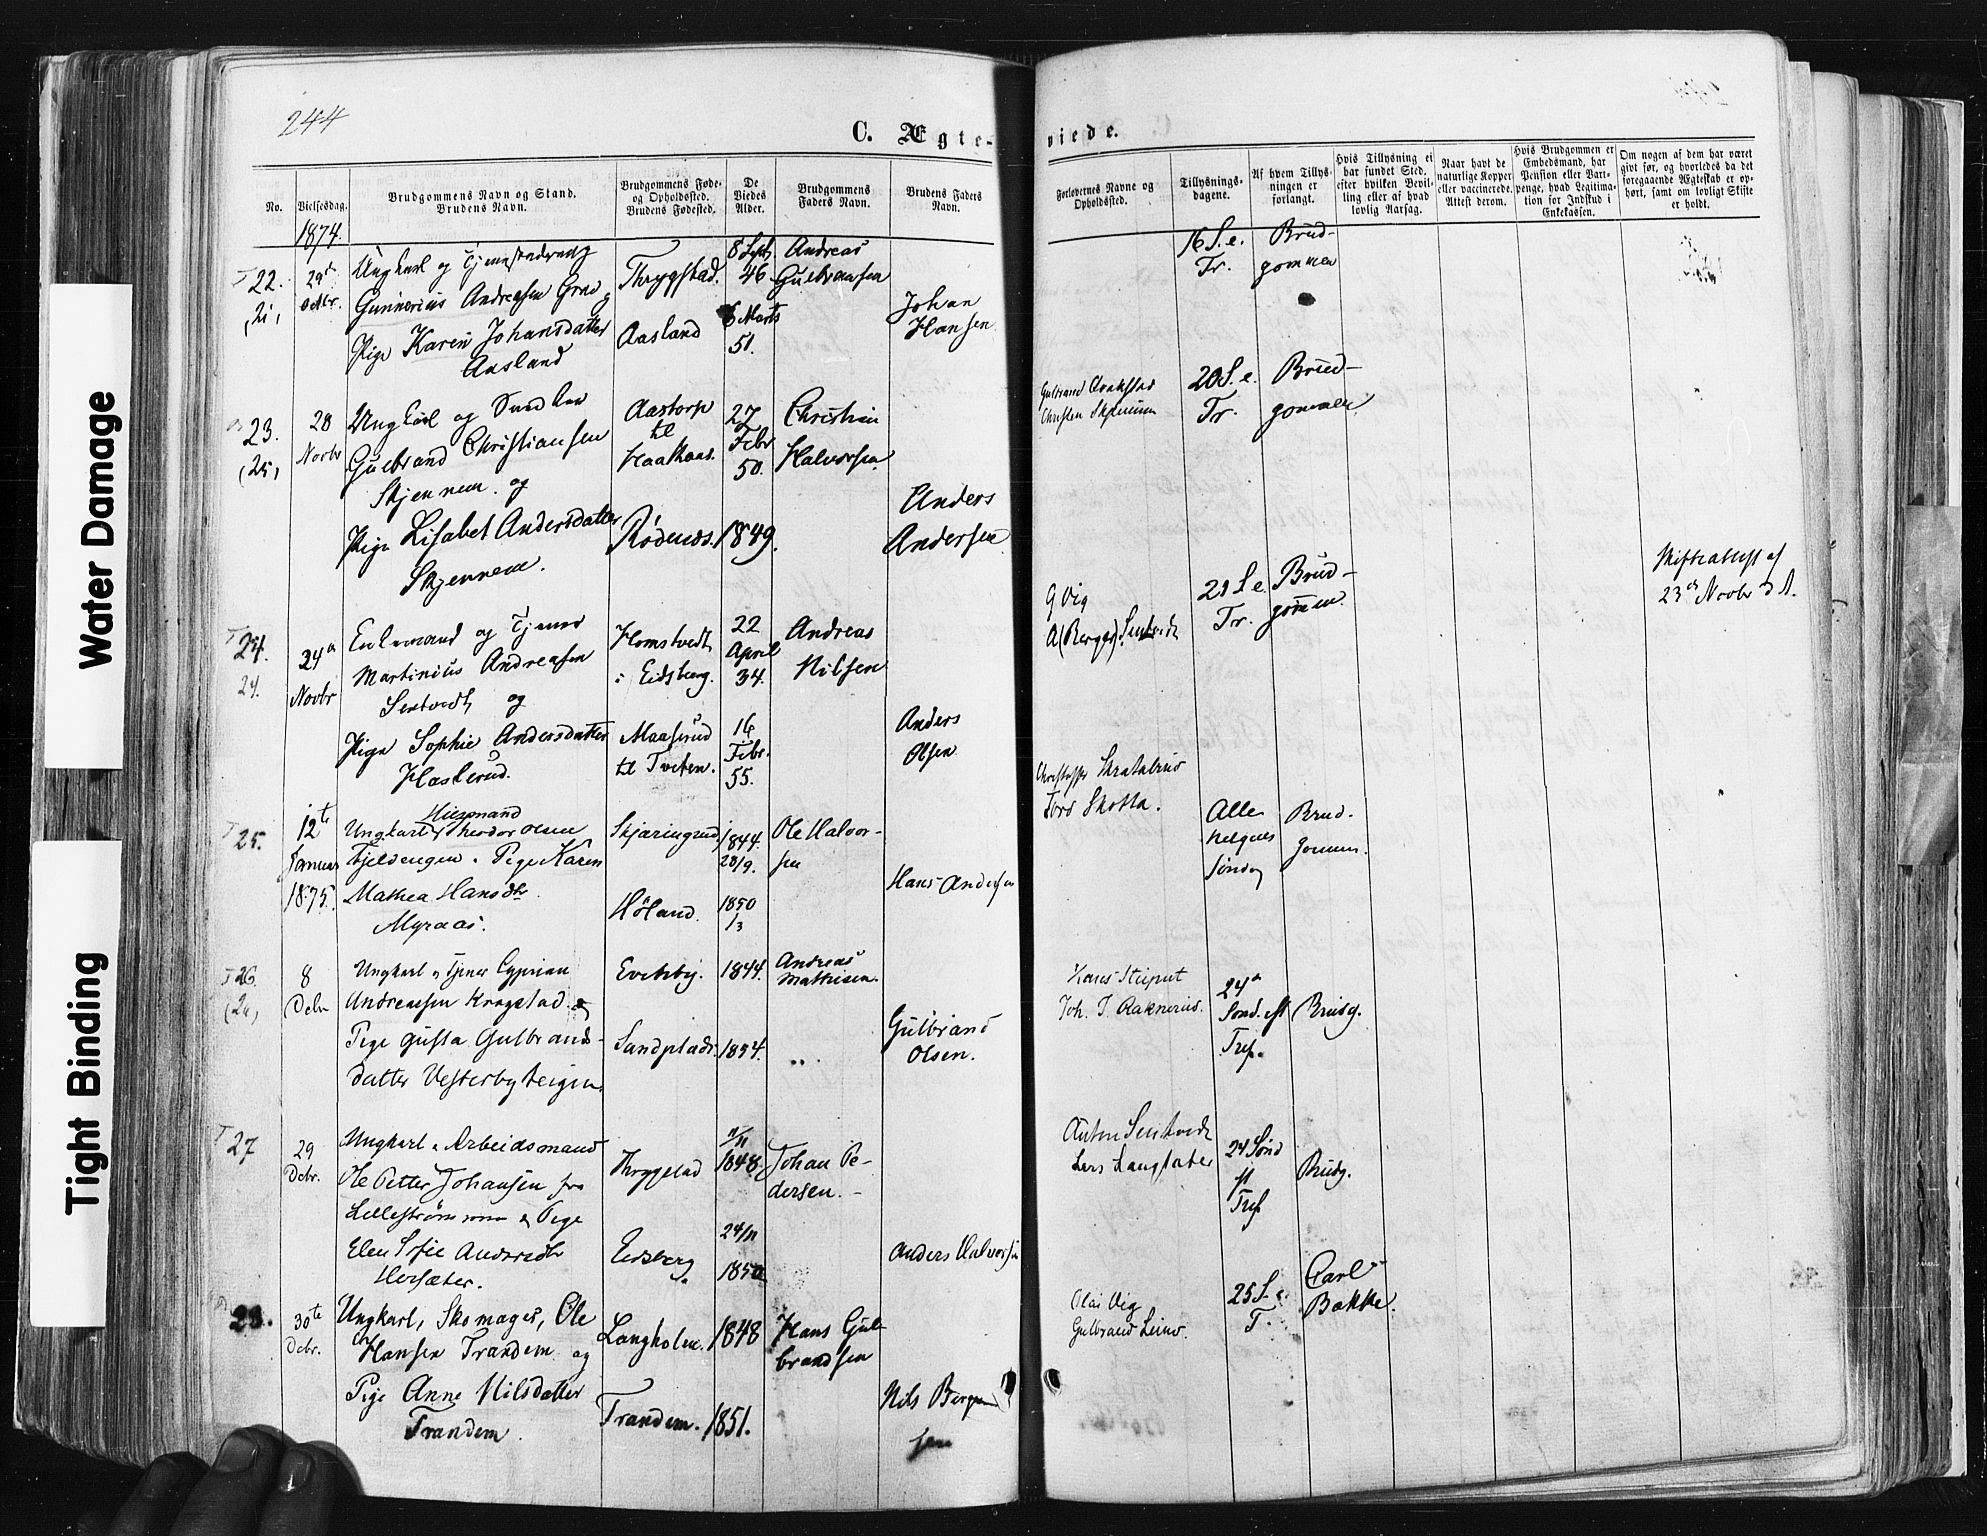 244
C. Ægte-
viede.
No.
Vielsesdag.
Brudgommens Navn og Stand.
Brudens Navn.
Brudgommens Føde-
og Opholdssted.
Brudens Fødested.
De
Viedes
Alder.
Brudgommens
Faders Navn.
Brudens Faders
Navn.
Forlovernes Navne og
Opholdssted.
Tillysnings-
dagene.
Af hvem Tillys-
ningen er
forlangt.
Hvis Tillysning ei
har fundet Sted,
efter hvilken Bevil-
ling eller af hvad
lovlig Aarsag.
Naar havt de
naturlige Kopper
eller vaccinerede.
Attest derom.
Hvis Brudgommen er
Embedsmand, har
Pension eller Vart-
penge, hvad Legitima-
tion for Indskud i
Enkekassen.
Om nogen af dem har været
gift før, og hvorledes da det
foregaaende Ægteskab er op-
hørt, samt om lovligt Skifte
er holdt.
1874.
22.
29de
Octbr.
Ungkarl og
Gunnerius Andreasen
Pige Karen Johansdatter
Aasland
Thrygstad.
Aasland
8 Sept
46.
6 Marts
51.
Andreas
Gulbransen
Johan
Hansen
16 S. e.
Tr.
Brud-
gommen
23.
(25)
28
Novbr
Ungkarl og
Gulbrand Christiansen
Skjennem og
Pige Lisabet Andersdatter
Skjennem.
Aastorp
til
Haakaas.
Rødenes.
27
Febr
50.
1849.
Christian
Halvorsen.
Anders
Andersen
Christen Skjennem
20 S. e.
Tr.
Brud-
gommen
24.
24.
24de
Novbr
Enkemand og Tjener
Martinius Andreasen
Sentvedt og
Pige Sophie Andersdatter
Haslerud.
Homstvedt
i Eidsberg.
Maaserud
til Tveten.
22
April
34.
16
Febr.
55.
Andreas
Nilsen
Anders
Olsen
G Vig
A (Berger) Sentvedt
21 S. e.
Tr.
Brud-
gommen.
Skifteattest af
23de Novbr d. A.
25.
12te
Januar
1875.
Huusmand
Ungkarl Theodor Olsen
Fjeldengen. Pige Karen
Mathea Hansdtr.
Myraas.
Skjæringrud
Høland.
1844.
28/9.
1850
1/3
Ole Halvor-
sen
Hans Andersen
Skotta.
Alle
helgens
Søndag
Brud-
gommen.
26.
8
Debr
Ungkarl og Tjener Cyprian
Andreassen Kragstad og
Pige Gusta Gulbrands-
datter Vesterbyteigen.
1844.
1854.
Andreas
Mathisen.
Gulbrand
Olsen.
Joh. J. Raknerud.
24de
Sønd. eft
Tref.
Brudg.
27
29
Debr.
Ungkarl & Arbeidsmand
Ole Petter Johansen fra
Lillestrømmen & Pige
Elen Sofie Andersdtr
Hersæter.
Thrygstad
Eidsberg
11/11
1848.
24/11
1850
Johan Pe-
dersen.
Anders Halvorsen
Anton Sentvedt
Lars Langsæter
24 Sønd
ft
Tref
Brudg.
28.
30te
Debr.
Ungkarl, Skomager, Ole
Hansen Trandem og
Pige Anne Nilsdatter
Trandem.
Langholen.
Trandem.
1848
1851.
Hans Gul-
brandsen
Nils Bergen
sen
Olai Vig
Gulbrand
25 S. e.
T.
Carl
Bakke.
Water Damage
Tight Binding